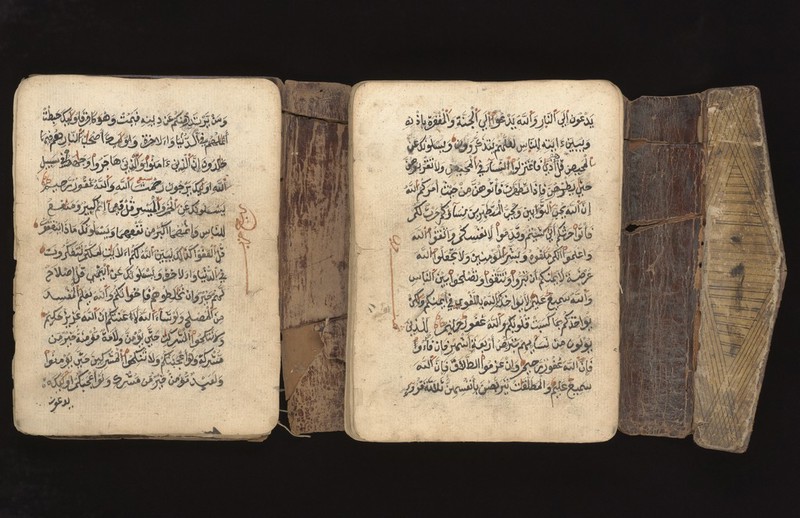 ومن يرتدد منكم عن دينه فيمت وهو كافر فأولئك حبطت
أعملهم في الدنيا والاخرة وأولئك أصحب النار هم فيها
خلدون إن الذين ءامنوا والذين هاجروا وجهدوا في سبيل
الله أولئك يرجون رحمت الله والله غفور رحيم
يسئلونك عن الخمر والميسر قل فيهما إثم كبير ومنفع
للناس وإثمهما أكبر من نفعهما ويسئلونك ماذا ينفقون
قل العفو كذلك يبين الله لكم الايت لعلكم تتفكرون
في الدنيا والاخرة ويسئلونك عن اليتمى قل إصلاح
لهم خير وإن تخالطوهم فإخونكم والله يعلم المفسد
من المصلح ولو شاء الله لأعنتكم إن الله عزيز حكيم
ولا تنكحوا المشركت حتى يؤمن ولأمة مؤمنة خير من
مشركة ولو أعجبتكم ولا تنكحوا المشركين حتى يؤمنوا
ولعبد مؤمن خير من مشرك ولو أعجبكم أولئك
يدعون
يدعون إلى النار والله يدعوا إلى الجنة والمغفرة بإذنه
ويبين ءايته للناس لعلهم يتذكرون ويسئلونك عن
المحيض قل هو أذى فاعتزلوا النساء في المحيض ولا تقربوهن
حتى يطهرن فإذا تطهرن فأتوهن من حيث أمركم الله
إن الله يحب التوبين ويحب المتطهرين نساؤكم حرث لكم
فأتوا حرثكم أنى شئتم وقدموا لانفسكم واتقوا الله
واعلموا أنكم ملقوه وبشر المؤمنين ولا تجعلوا الله
عرضة لايمنكم أن تبروا وتتقوا وتصلحوا بين الناس
والله سميع عليم لا يواخذكم الله باللغو في أيمنكم ولكن
يواخذكم بما كسبت قلوبكم والله غفور حليم للذين
يؤلون من نسائهم تربص أربعة أشهر فإن فاءوا
فإن الله غفور رحيم وإن عزموا الطلاق فإن الله
سميع عليم والمطلقت يتربصن بأنفسهن ثلثة قروء